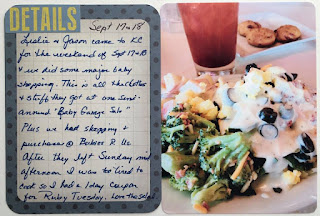 DETAILS
Sept 17-18
Leslie & Jason came to KC
for the weekend of Sept 17-18
& we did some major baby
shopping. This is all the clothes
& stuff they got at one Semi-
around "Baby Garage Sale"
Plus we had shopping &
purchases @ Babies R Us
After they left Sunday mid
afternoon I was to tired to
cook so I had a 1day coupon
for Ruby Tuesday. Love the Salad